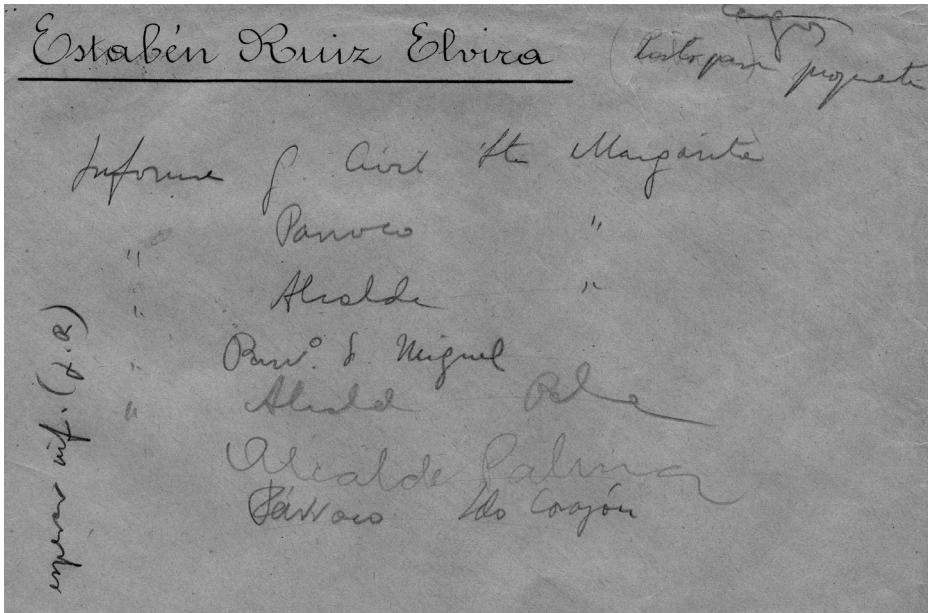 Estabén Ruiz Elvira
Informe G. Civil Sta Margarita
" Parroco "
" Alcalde "
" Parrº. S. Miguel
" Alcald
Alcalde Palma
Párroco Sdo Corazón
esperar inf.